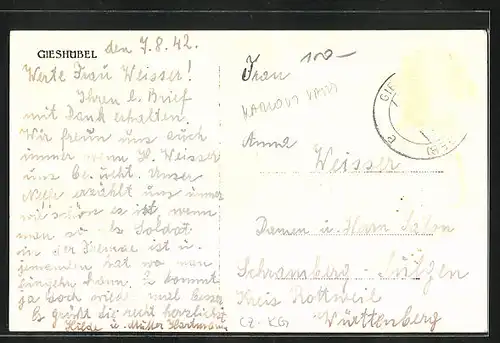 GIESHÜBEL
den 7.8.42.
Werte Frau Weisser!
Ihren l. Brief
mit Dank erhalten.
Wir freun uns auch
immer wenn H. Weisser
uns besucht. Unser
erzählt uns immer
wie schön es ist wenn
man so als Soldat
in der Fremde ist u.
jemanden hat wo man
hingehn kann. Es kommt
ja doch wieder mal besser
Es grüßt Sie recht herzlichst
Hilde u. Mutter Hartmann
Frau
100-
KARLOVY VARY
Anna
Weisser
Damen u. Herrn Salon
Schramberg - Sulgen
Kreis Rottweil
Württenberg
CZ - KG